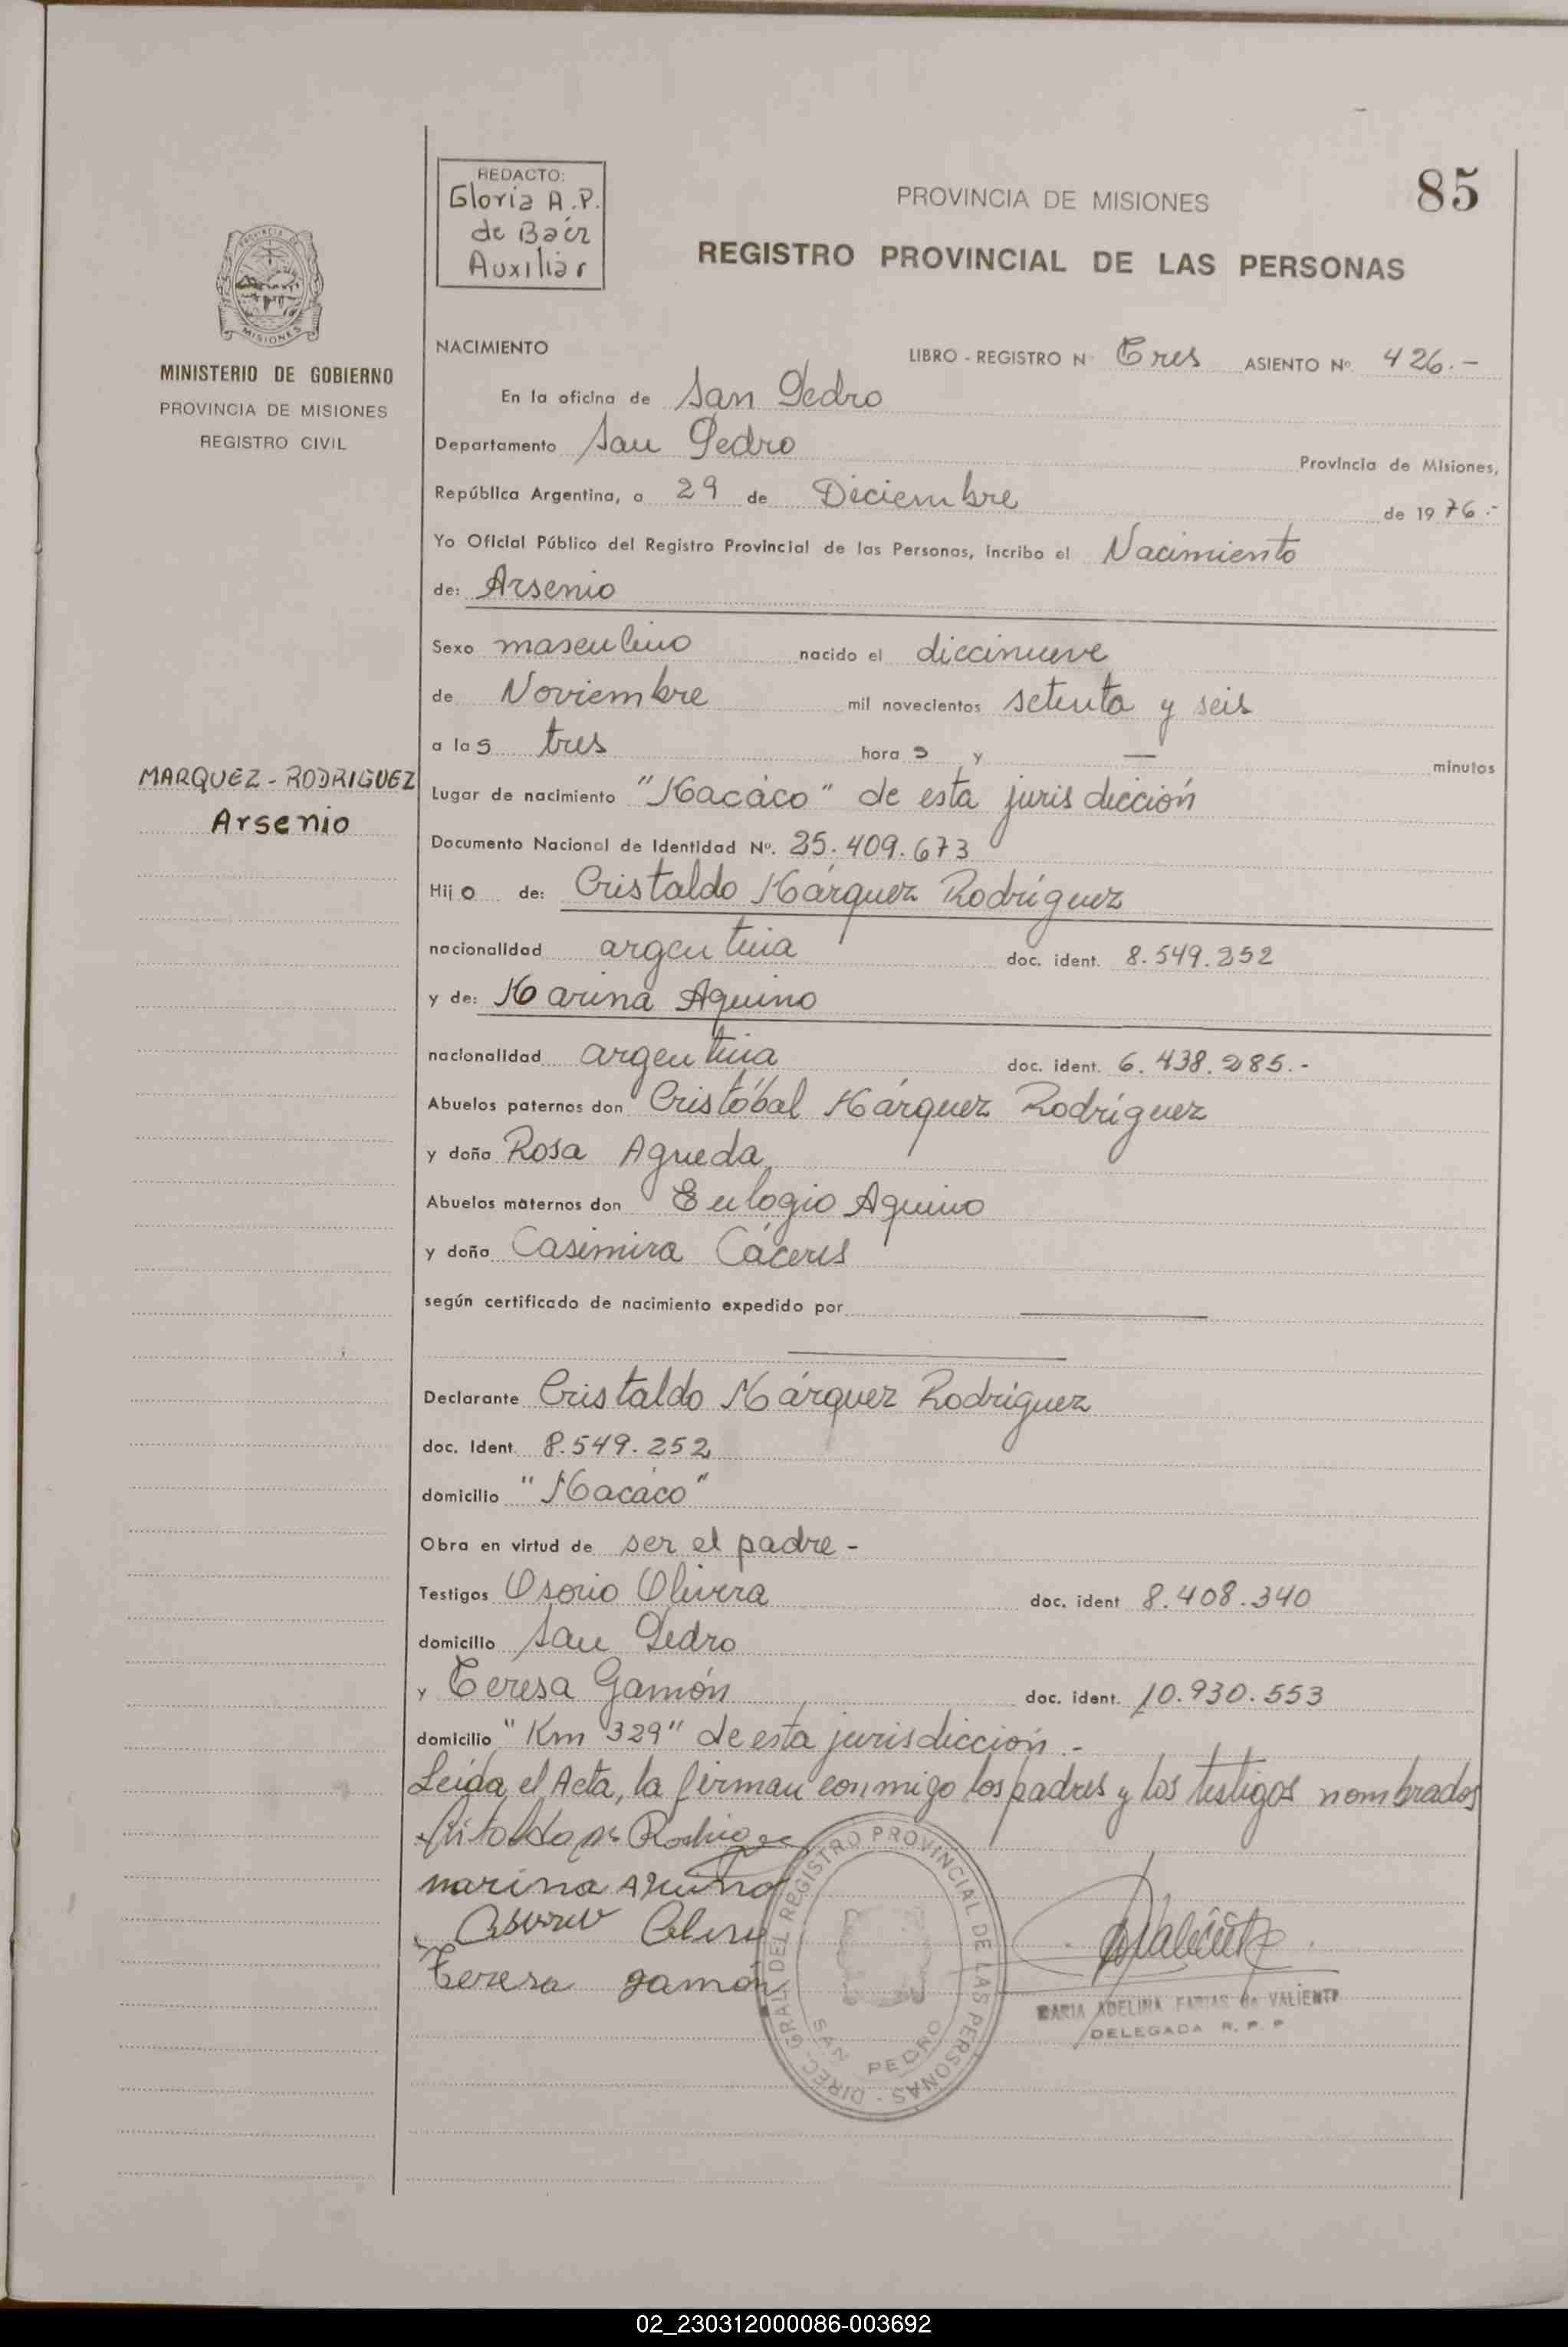 REDACTO:
Gloria A.P.
de Baéz
Auxiliar
PROVINCIA DE MISIONES
85
REGISTRO PROVINCIAL DE LAS PERSONAS
MISIONES
MINISTERIO DE GOBIERNO
PROVINCIA DE MISIONES
REGISTRO CIVIL
MARQUEZ - RODRIGUEZ
Arsenio
NACIMIENTO
LIBRO - REGISTRO N Tres ASIENTO Nº 426.-
En la oficina de San Pedro
Departamento San Pedro Provincia de Misiones,
República Argentina, a 29 de Diciembre de 1976.-
Yo Oficial Público del Registro Provincial de las Personas, incribo el Nacimiento
de: Arsenio
Sexo masculino nacido el diecinueve
de Noviembre mil novecientos setenta y seis
a las tres horas y — minutos
Lugar de nacimiento "Macáco" de esta jurisdicción
Documento Nacional de Identidad Nº. 25.409.673
Hijo de: Cristaldo Márquez Rodríguez
nacionalidad argentina doc. ident. 8.549.252
y de: Marina Aquino
nacionalidad argentina doc. ident. 6.438.285.-
Abuelos paternos don Cristóbal Márquez Rodríguez
y doña Rosa Agueda
Abuelos maternos don Eulogio Aquino
y doña Casimira Cáceres
según certificado de nacimiento expedido por
Declarante Cristaldo Márquez Rodríguez
doc. Ident. 8.549.252
domicilio "Macáco"
Obra en virtud de ser el padre -
Testigos Osorio Olivera doc. ident 8.408.340
domicilio San Pedro
y Teresa Gamón doc. ident. 10.930.553
domicilio "Km 329" de esta jurisdicción.-
Leída el Acta, la firman conmigo los padres y los testigos nombrados
marina Aquino
Teresa gamón
DIREC. GRAL. DEL REGISTRO PROVINCIAL DE LAS PERSONAS
SAN PEDRO
MARIA ADELINA FARIAS de VALIENTE
DELEGADA R. P. P
02_230312000086-003692